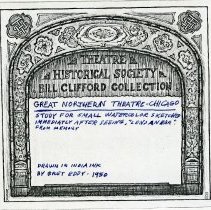 THEATRE
HISTORICAL SOCIETY
BILL CLIFFORD COLLECTION
GREAT NORTHERN THEATRE-CHICAGO
STUDY FOR SMALL WATERCOLOR SKETCHED
IMMEDIATELY AFTER SEEING,
FROM MEMORY
DRAWN IN INDIA INK
BY BRET EDDY - 1980